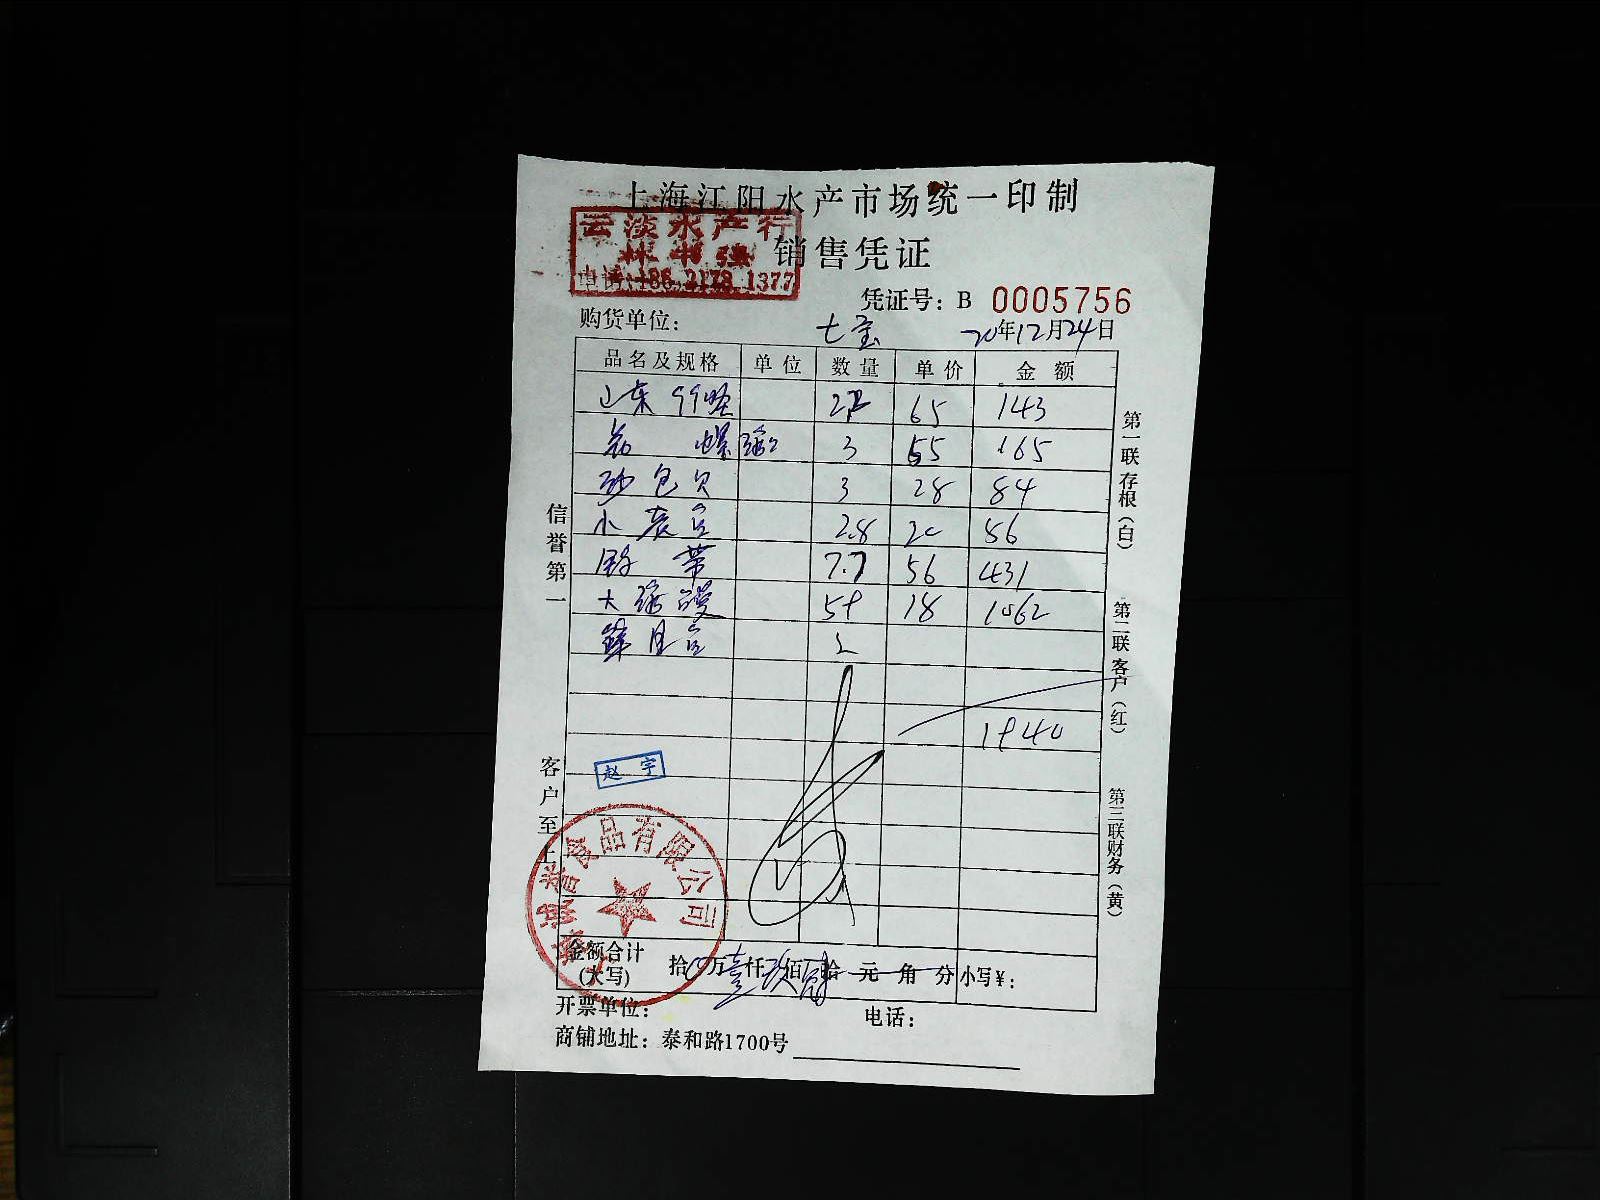 上海江阳水产市场统一印制
云淡水产行
销售凭证
电话:186 2178 1377
凭证号: B 0005756
购货单位: 七宝 20年12月24日
品名及规格 单位 数量 单价 金额
山东 65 143
3 55 165
砂包贝 3 28 84
小 2.8 20 56
带 7.7 56 431
大 59 18 1062
2
1940
赵宇
食品有限公司
金额合计(大写) 拾 万壹仟玖佰 拾 元 角 分 小写¥:
开票单位: 电话:
商铺地址: 泰和路1700号
信誉第一
客户至上
第一联存根(白)
第二联客户(红)
第三联财务(黄)